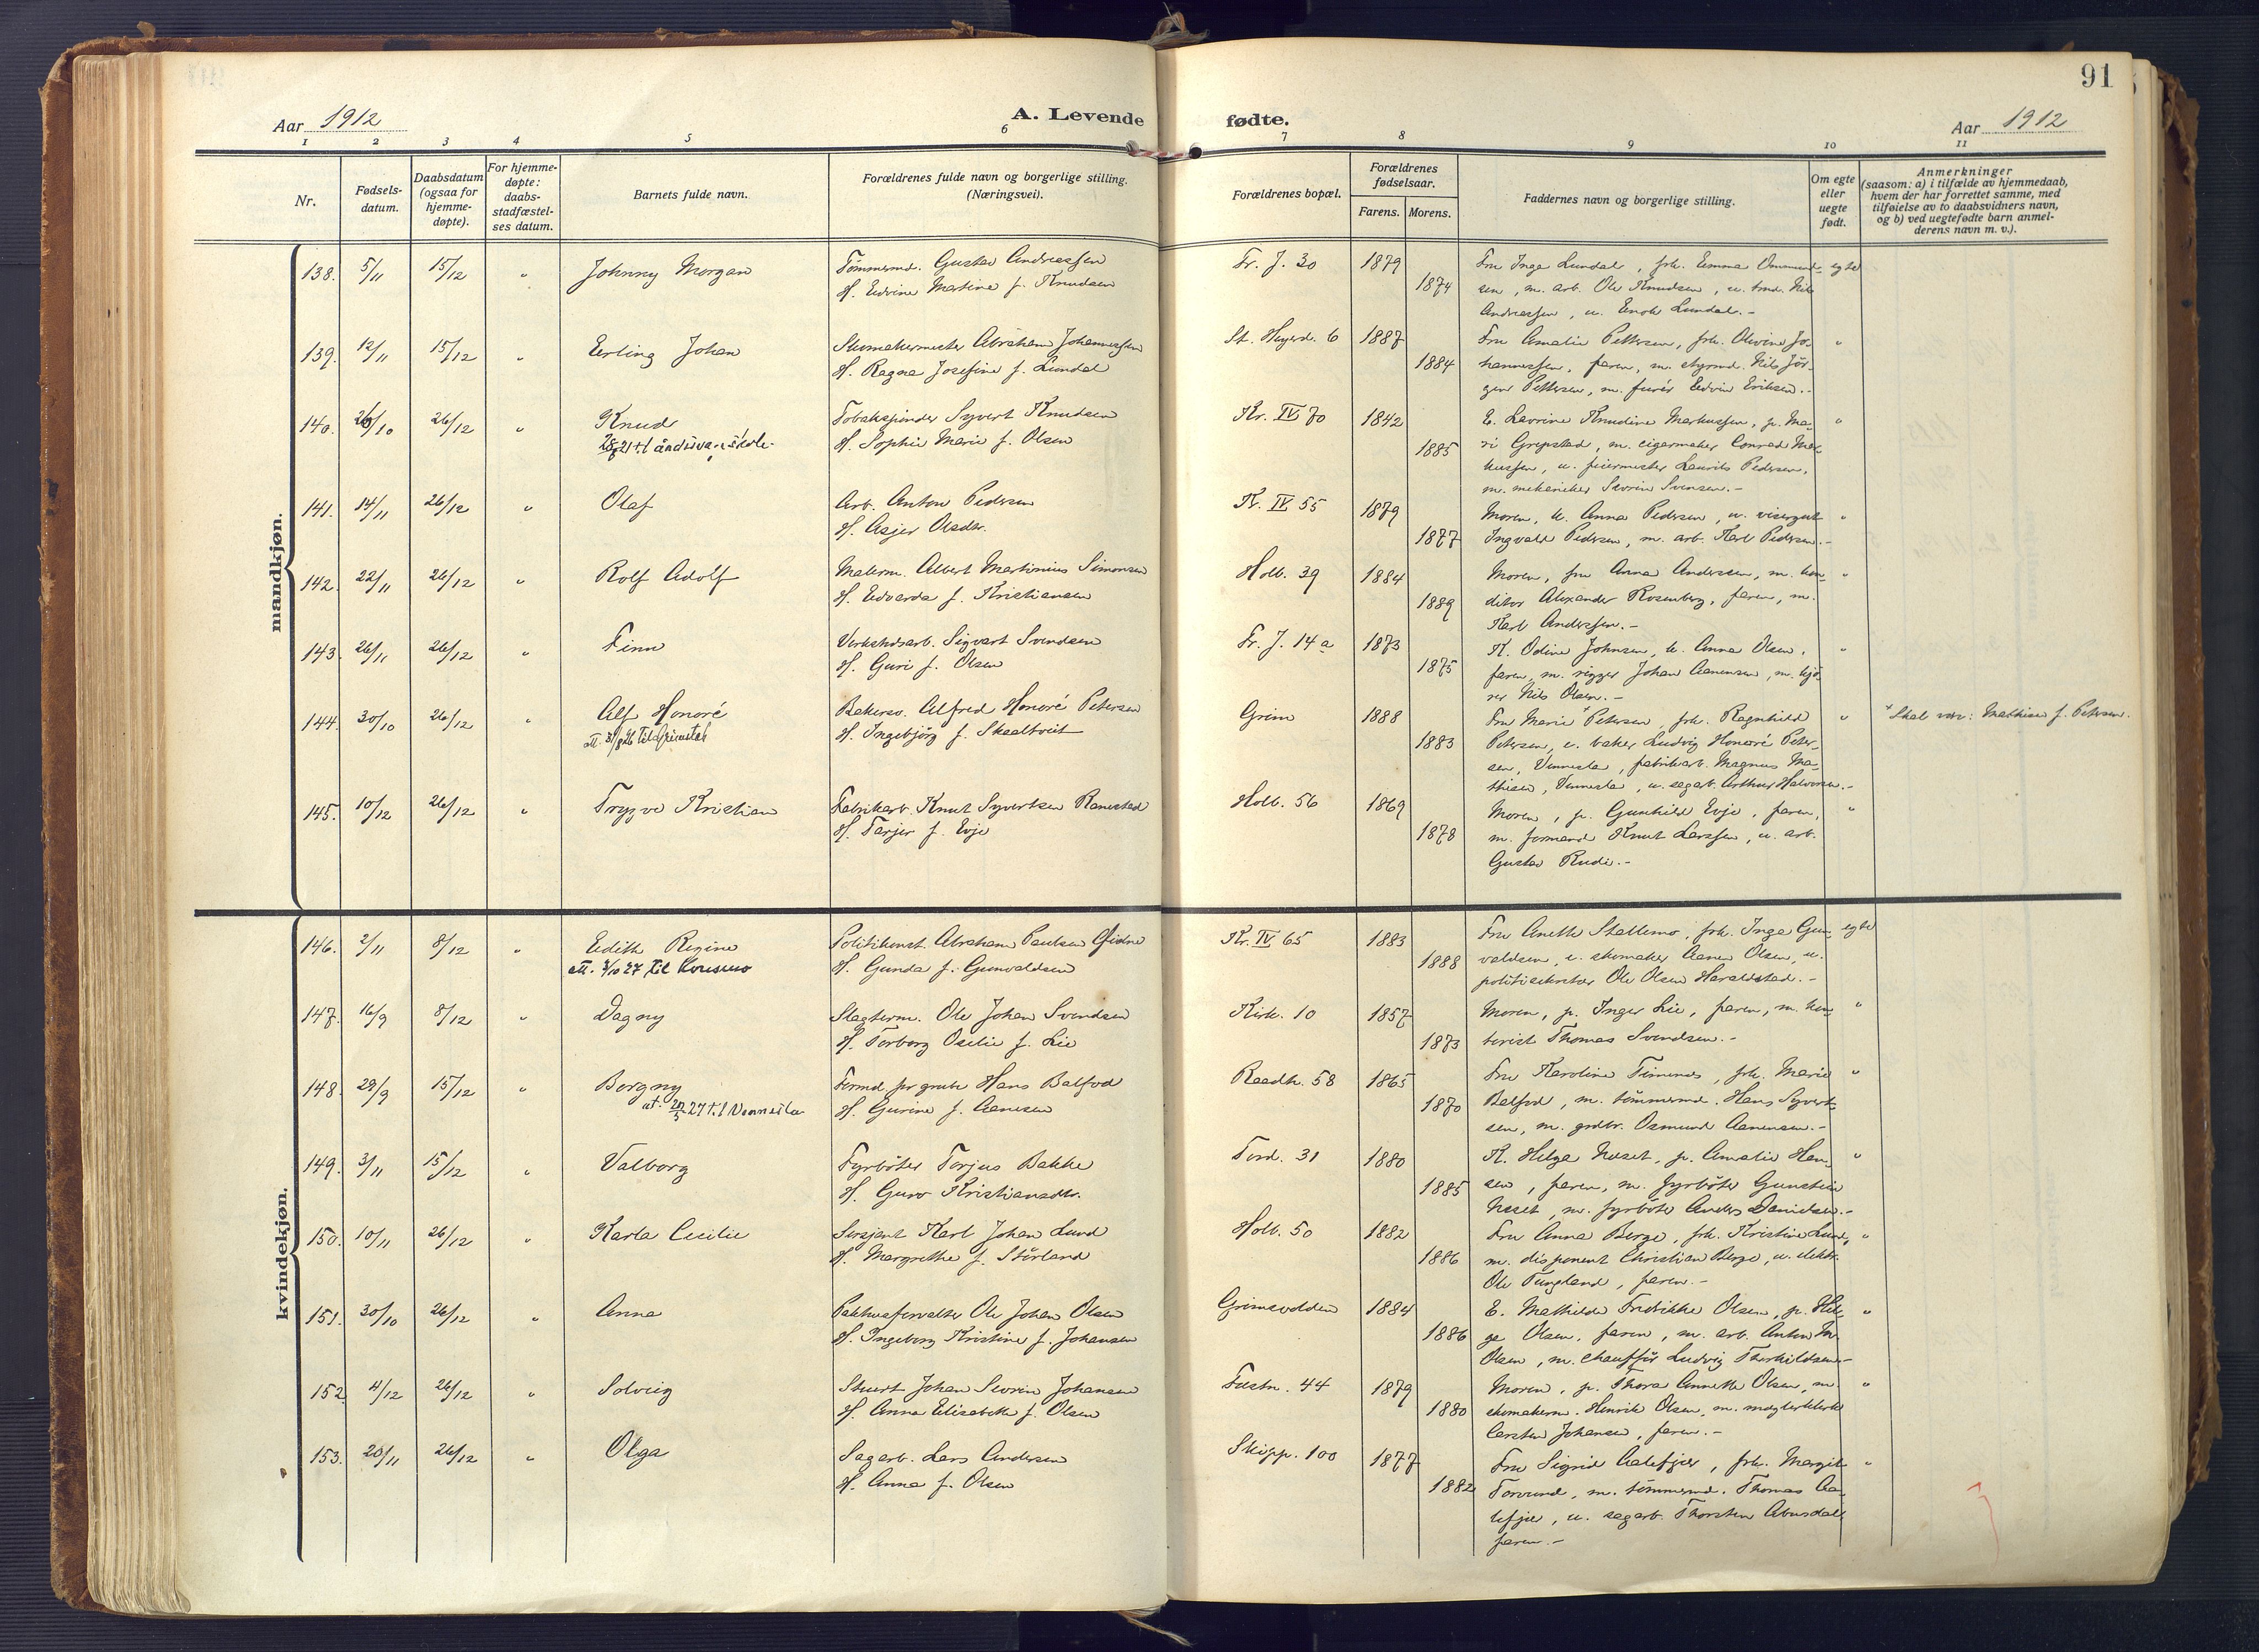 91
Aar 1912
A. Levende fødte.
Aar 1912
1 2 3 4 5 6 7 8 9 10 11
Nr.
Fødsels-
datum.
Daabsdatum
(ogsaa for
hjemme-
døpte).
For hjemme-
døpte:
daabs-
stadfæstel-
ses datum.
Barnets fulde navn.
Forældrenes fulde navn og borgerlige stilling.
(Næringsvei).
Forældrenes bopæl.
Forældrenes
fødselsaar.
Farens. Morens.
Faddernes navn og borgerlige stilling.
Om egte
eller
uegte
født.
Anmerkninger
(saasom: a) i tilfælde av hjemmedaab,
hvem der har forrettet samme, med
tilføielse av to daabsvidners navn,
og b) ved uegtefødte barn anmel-
derens navn m. v.).
mandkjøn.
138. 5/11 15/12 " Johnny Morgan
Tømmermd. Gustav Andreassen
H. Edvine Martine f. Knudsen
Fr. J. 30 1879 1874
Fru Inga Lundal, frk. Emma Ommund-
sen, m. arb. Ole Knudsen, u. tmd. Nils
Andreassen, u. Enok Lundal.-
egte
139. 12/11 15/12 " Erling Johan
Skomakermester Abraham Johannessen
H. Ragna Josefine f. Lundal
St. Hageds. 6 1887 1884
Fru Amalie Pettersen, frk. Olivine Jo-
hannessen, faren, m. styrmd. Nils Jør-
gen Pettersen, m. furér Edvin Eriksen.-
"
140. 26/10 26/12 " Knud
28/8 21 t. l åndssva. skole.
Tobakspinder Syvert Knudsen
H. Sophie Marie f. Olsen
Kr. IV 70 1842 1885
E. Lavrine Knudine Markussen, p. Ma-
ri Grepstad, m. cigarmaker Conrad Mar-
kussen, u. feiermester Laurits Pedersen,
m. mekaniker Severin Svensen.-
"
141. 14/11 26/12 " Olaf
Arb. Anton Pedersen
H. Asjer Olsdtr.
Kr. IV 55 1879 1877
Moren, k. Anna Pedersen, u. visergut
Ingvald Pedersen, m. arb. Karl Pedersen.-
"
142. 22/11 26/12 " Rolf Adolf
Malerm. Albert Martinius Simonsen
H. Edvarda f. Kristiansen
Holb. 39 1884 1889
Moren, fru Anna Andersen, m. kon-
ditor Alexander Rosenberg, faren, m.
Karl Anderssen.-
"
143. 26/11 26/12 " Finn
Verkstedsarb. Sigvart Svendsen
H. Guri f. Olsen
Fr. J. 14 a 1873 1875
K. Odine Johnsen, k. Anna Olsen,
faren, m. rigger Johan Aanensen, m. kjø-
rer Nils Olsen.-
"
144. 30/10 26/12 " Alf Honoré
att. 3/8 26 til Grimstad
Bakersv. Alfred Honoré Petersen
H. Ingebjørg f. Skaaltveit
Grim 1888 1883
Fru Marie * Petersen, frk. Ragnhild
Petersen, u. baker Ludvig Honoré Peter-
sen, Vennesla, fabrikarb. Magnus Ma-
thisen, Vennesla, u. sagarb. Arthur Halvorsen.-
"
* Skal være: Mathisen f. Petersen.
145. 10/12 26/12 " Trygve Kristian
Fabrikarb. Knut Syvertsen Ranestad
H. Tarjer f. Evje
Holb. 56 1869 1878
Moren, p. Gunhild Evje, faren,
m. formand Knut Larssen, u. arb.
Gustav Rudi.-
"
kvindekjøn.
146. 2/11 8/12 " Edith Regine
att. 3/10 27 til Korsmo
Politikonst. Abraham Paulsen Gidne
H. Gunda f. Gunvaldsen
Kr. IV 65 1883 1888
Fru Anette Stallemo, frk. Inga Gun-
valdsen, u. skomaker Aanen Olsen, u.
politisekretær Ole Olsen Haraldstad.-
egte
147. 16/9 8/12 " Dagny
Slagterm. Ole Johan Svendsen
H. Torborg Oselie f. Lie
Kirk. 10 1857 1873
Moren, p. Inger Lie, faren, m. kon-
torist Thomas Svendsen.-
"
148. 29/9 15/12 " Borgny
at. 20/5 27 t. l Vennesla
Formd. pr grube Hans Balfod
H. Gurine f. Aanesen
Raadh. 58 1865 1870
Fru Karoline Timenes, frk. Marie
Balfod, m. tømmermd. Hans Syvert-
sen, m. grdbr. Osmund Aanensen.-
"
149. 3/11 15/12 " Valborg
Fyrbøter Torjus Bakke
H. Guro Kristiansdtr.
Tord. 31 1880 1885
K. Helga Neset, p. Amalie Han-
sen, faren, m. fyrbøter Gunstein
Neset, m. fyrbøter Anders Danielsen.-
"
150. 10/11 26/12 " Karla Cecilie
Sersjant Karl Johan Lund
H. Margrethe f. Størland
Holb. 50 1882 1886
Fru Anna Berge, frk. Kristine Lund,
m. disponent Christian Berge, u. elektr.
Ole Tungland, faren.-
"
151. 30/10 26/12 " Anna
Pakhusforvalter Ole Johan Olsen
H. Ingeborg Kristine f. Johansen
Grimsvolden 1884 1886
E. Mathilde Fredrikke Olsen, p. Hel-
ga Olsen, faren, m. arb. Anton M.
Olsen, m. chauffør Ludvig Therkildsen.-
"
152. 4/12 26/12 " Solveig
Stuert Johan Severin Johansen
H. Anna Elisabeth f. Olsen
Fæstn. 44 1879 1880
Moren, p. Thora Annette Olsen, m.
skomakerm. Henrik Olsen, m. mæglerklerk
Carsten Johansen, faren.-
"
153. 20/11 26/12 " Olga
Sagarb. Lars Andersen
H. Anna f. Olsen
Skipp. 100 1877 1882
Fru Sigrid Aalefjær, frk. Margit
Torvund, m. tømmermd. Thomas Aa-
lefjær, u. sagarb. Thorsten Abusdal
faren.-
"